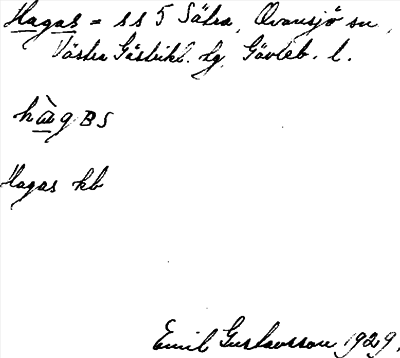 Hagas = s s 5 Sätra, Ovansjö sn,
Västra Gästrikl. hg, Gävleb. l.
hàgBS
Hagas kb
Emil Gustavsson 1929.